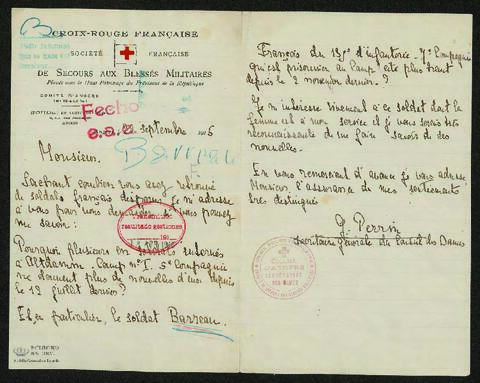 B
CROIX-ROUGE FRANÇAISE
SOCIÉTÉ FRANÇAISE
DE SECOURS AUX BLESSÉS MILITAIRES
COMITÉ D'ANGERS
Fecho
22 septembre 1915
Barreau
F.
Monsieur.
Sachant combien vous avez retrouvé
de soldats français disparus, je m'adresse
à vous pour vous demander si vous pouvez
me savoir :
Pourquoi plusieurs soldats internés
à Altdamm Camp nº I. 5e Compagnie
ne donnent plus de nouvelles d'eux depuis
le 12 juillet dernier ?
Et, en particulier, le soldat Barreau
Transmitido
resultado gestiones
191
François du 135e d'infanterie. 7e Compagnie
qui est prisonnier au camp
depuis le 2 novembre dernier ?
Je m'intéresse vivement à ce soldat dont la
femme est à mon service et je vous serais très
reconnaissante de me faire savoir de ses
nouvelles.
En vous remerciant d'avance je vous adresse
Monsieur, l'assurance de mes sentiments
très distingués
G. Perrin
secrétaire générale du Comité des Dames